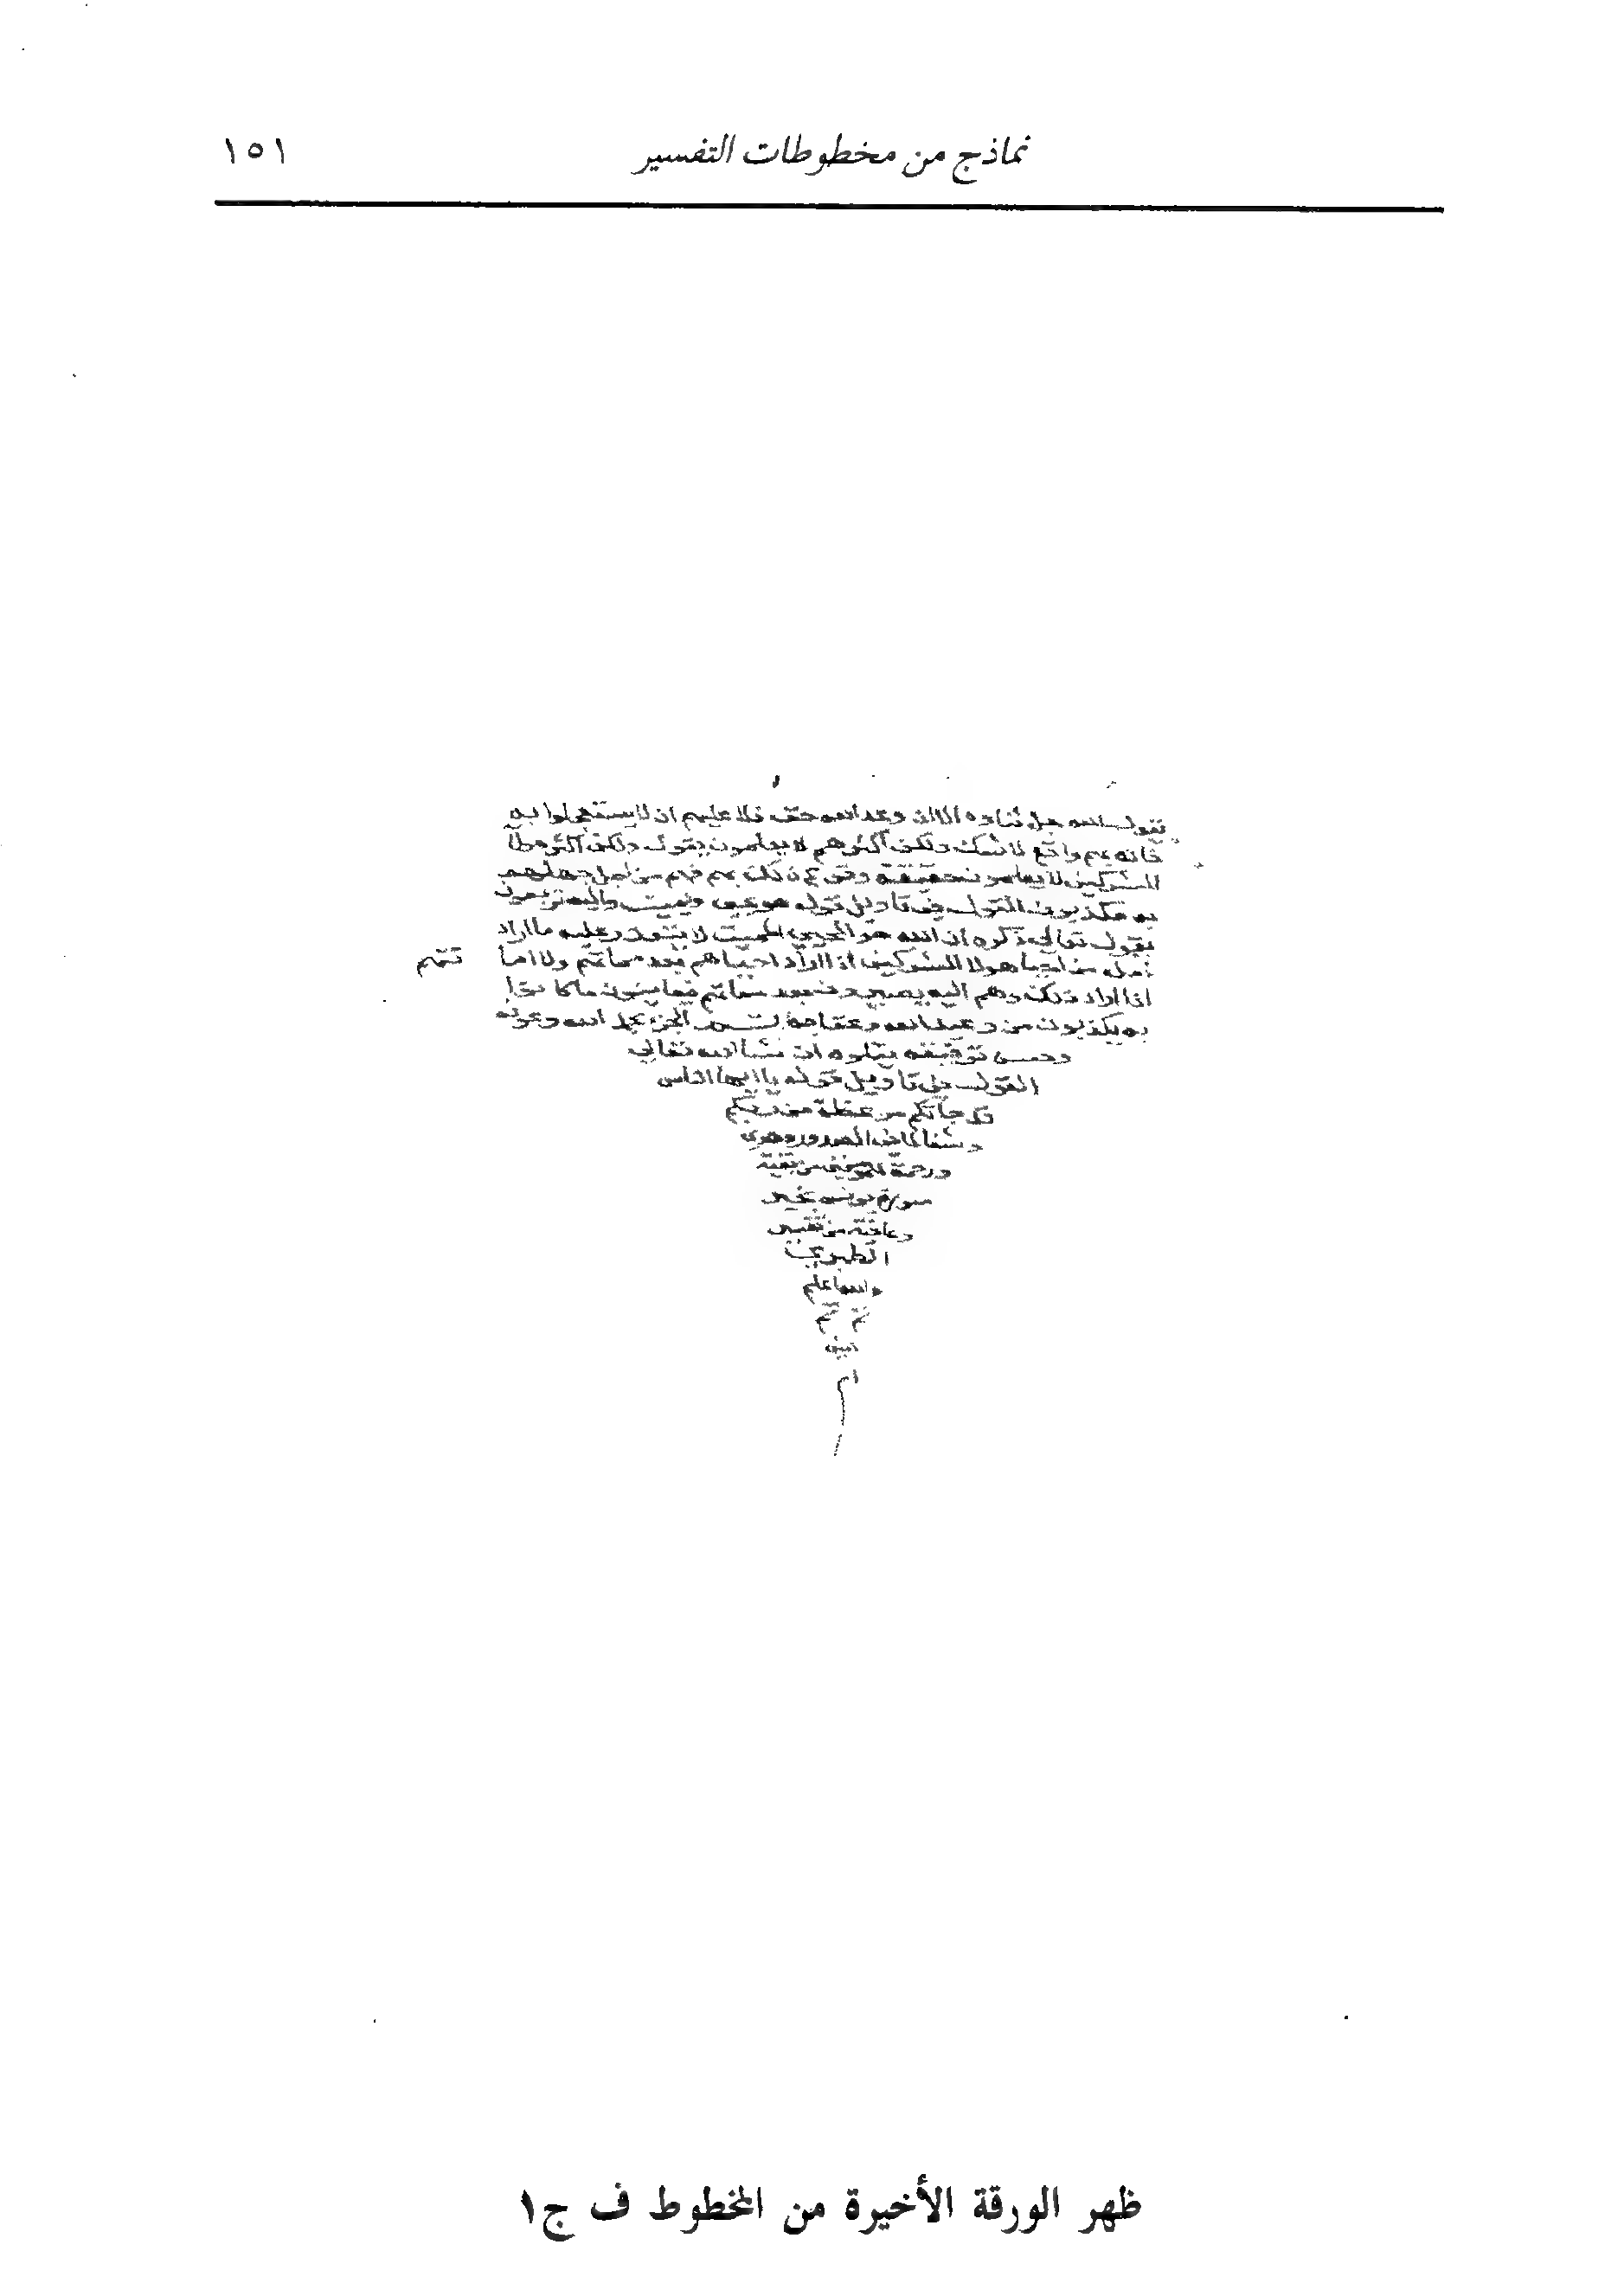 نماذج من مخطوطات التفسير ١٥١
يقول الله جل ثناؤه الا ان وعد الله حق فلا عليهم ان لا يستعجلوا به
فانه بهم واقع لا شك ولكن اكثرهم لا يعلمون يقول ولكن اكثر هولا
المشركين لا يعلمون حقيقة وقوع ذلك بهم فهم من اجل جهلهم
به مكذبون القول في تاويل قوله هو يحيى ويميت واليه ترجعون
يقول تعالى ذكره ان الله هو المحيي المميت لا يتعذر عليه ما اراد
فعله من احيا هولا المشركين اذا اراد احياهم بعد مماتهم ولا اما
تتهم
اذا اراد ذلك وهم اليه يصيرون بعد مماتهم فيعاينون ما كانوا
به يكذبون من وعيد الله وعقابه الجزء بحمد الله وعونه
وحسن توفيقه يتلوه ان شا الله تعالى
القول في تاويل قوله يا ايها الناس
قد جاتكم موعظة من ربكم
وشفا لما في الصدور وهدى
ورحمة للمومنين من بقية
سورة يونس بخير
وعافية من تفسير
الطبري
والله اعلم
تم تم
امين
ظهر الورقة الأخيرة من المخطوط ف ج١